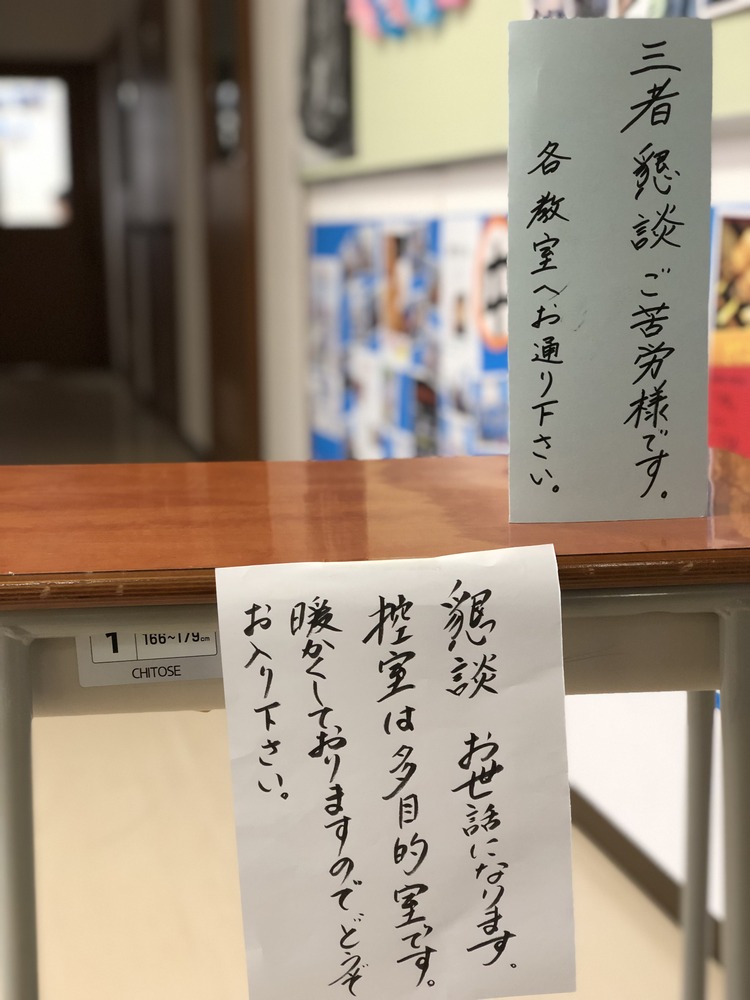 三者懇談ご苦労様です。
各教室へお通り下さい。
懇談 お世話になります。
控室は多目的室です。
暖かくしておりますのでどうぞ
お入り下さい。
1
166~179cm
CHITOSE